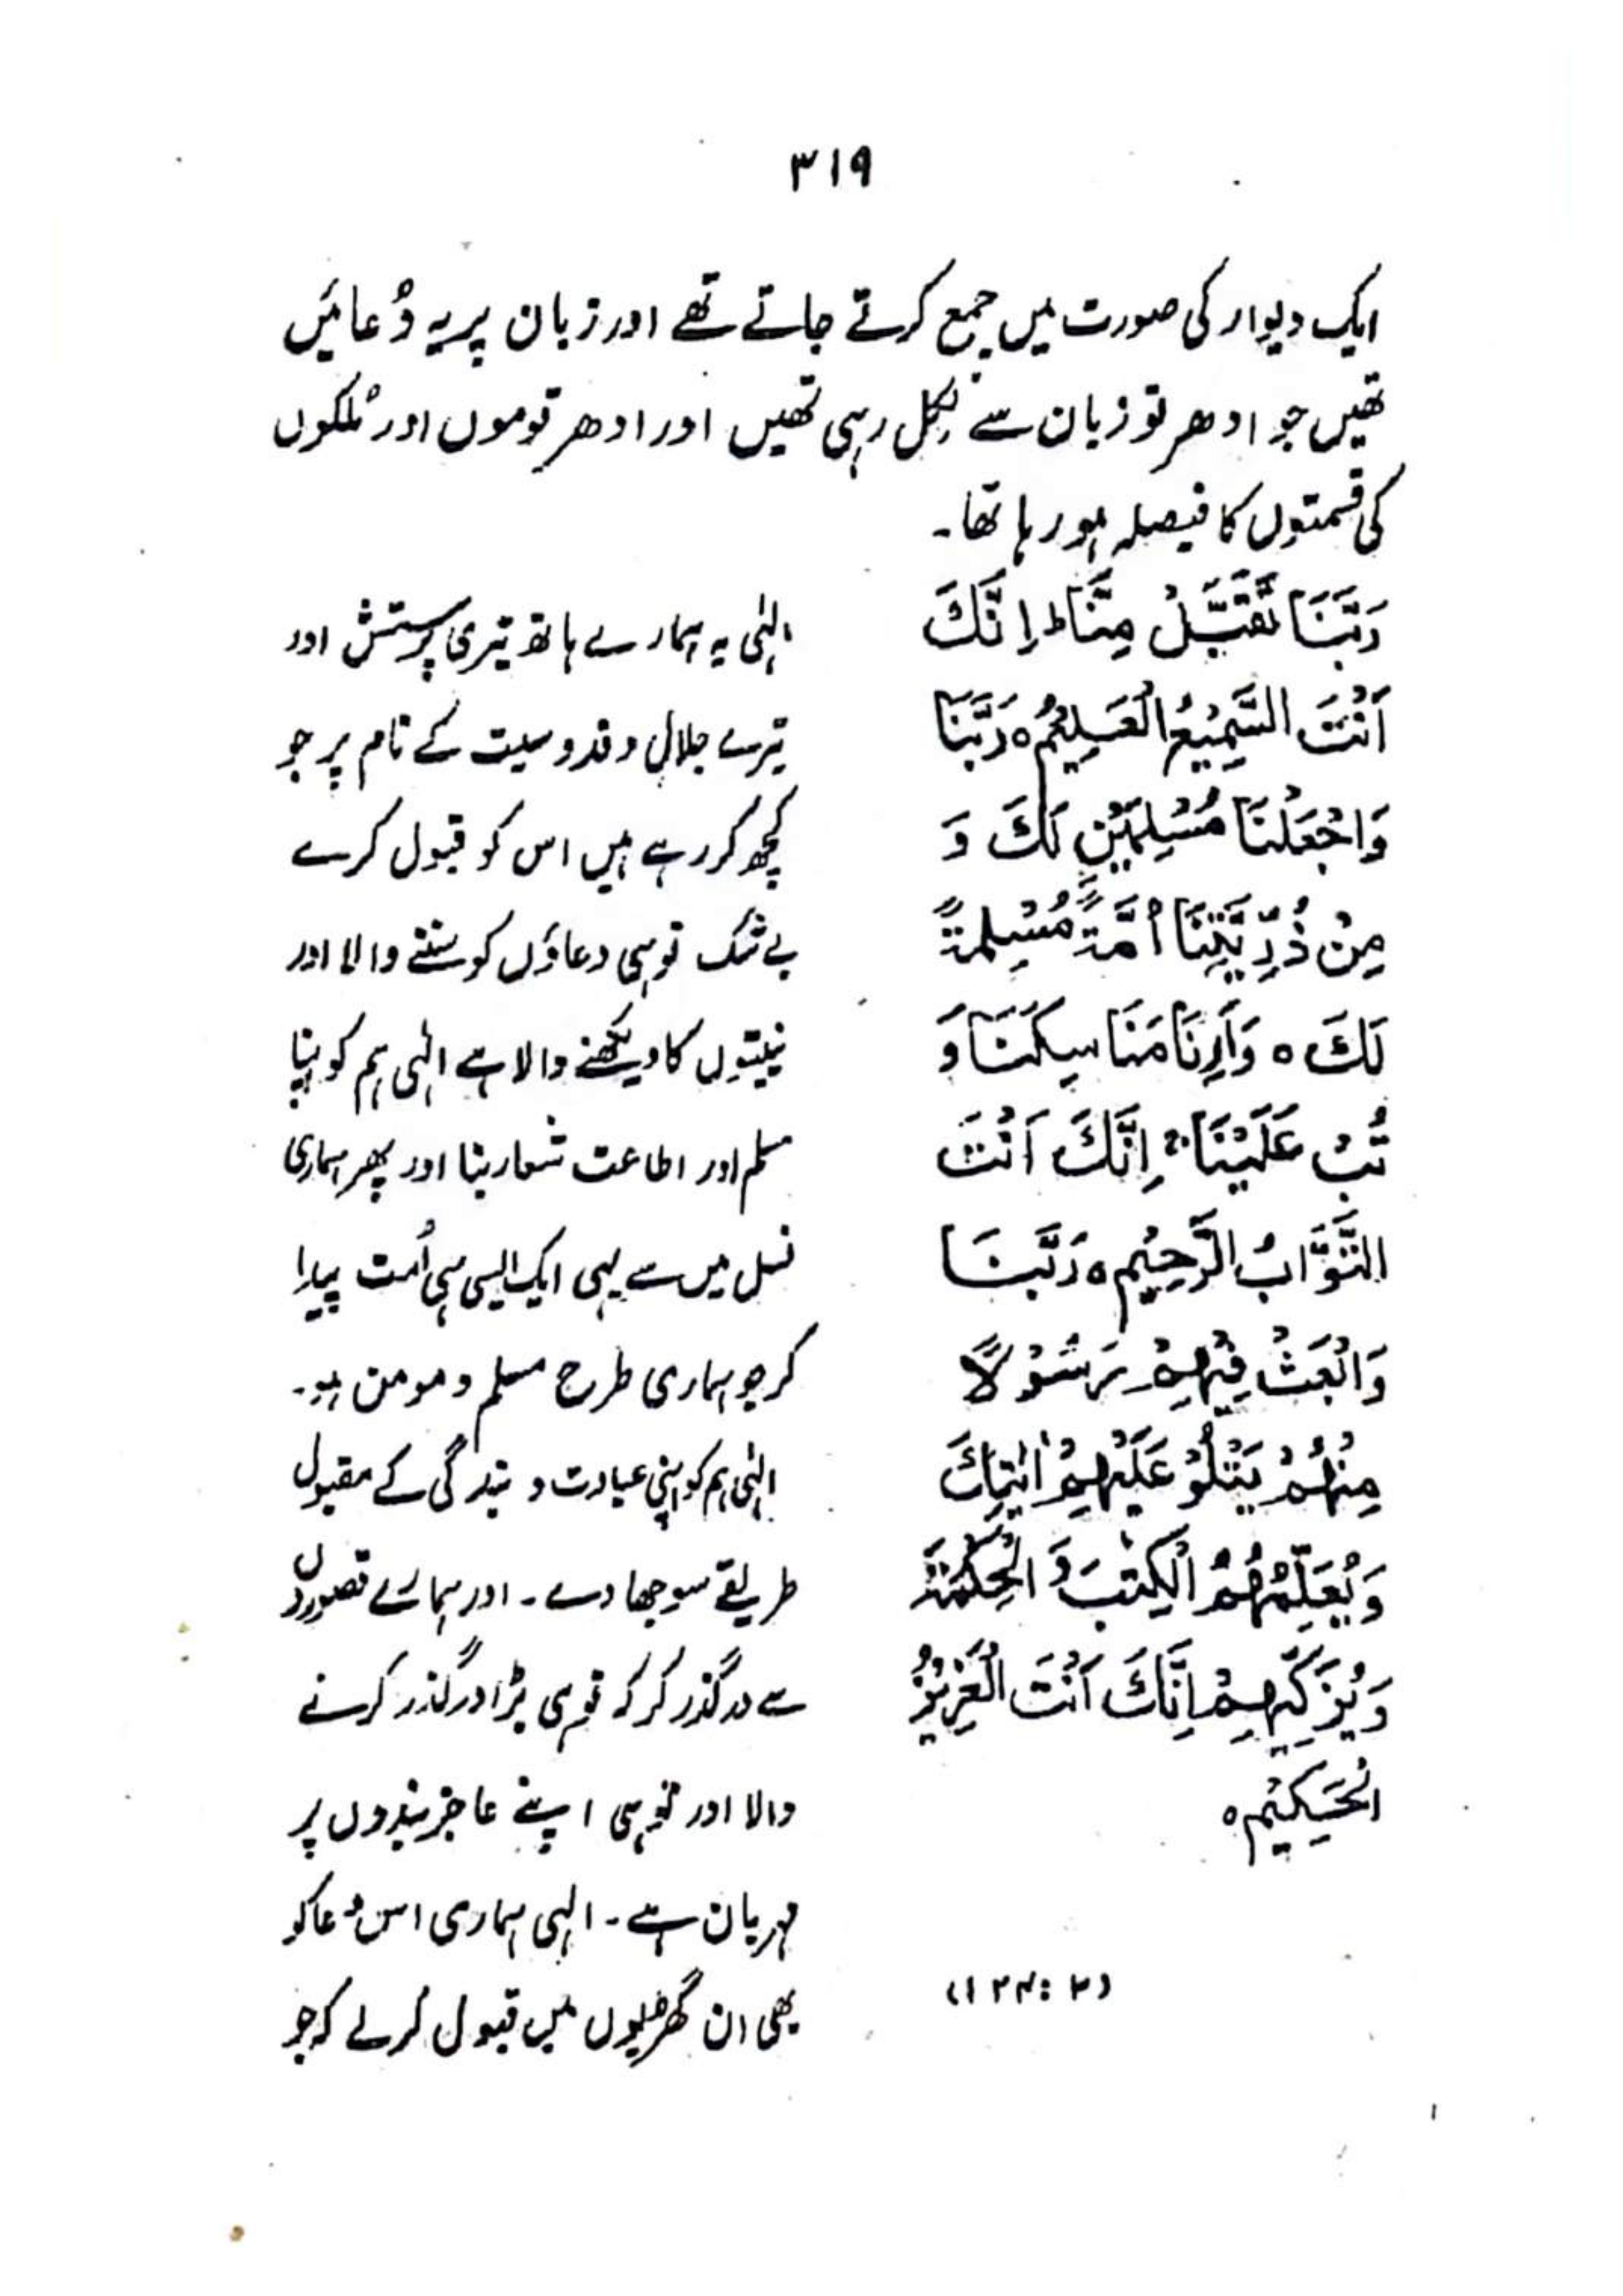 ۳۱۹
ایک دیوار کی صورت میں جمع کرتے جاتے تھے اور زبان پر یہ دُعائیں
تھیں جو ادھر تو زبان سے نکل رہی تھیں اور ادھر قوموں اور مُلکوں
کی قسمتوں کا فیصلہ ہو رہا تھا۔
رَبَّنَا تَقَبَّلْ مِنَّا ط اِنَّكَ
اَنْتَ السَّمِيْعُ الْعَلِيْمُ ہ رَبَّنَا
وَاجْعَلْنَا مُسْلِمَيْنِ لَكَ وَ
مِنْ ذُرِّيَّتِنَا اُمَّةً مُّسْلِمَةً
لَكَ ہ وَاَرِنَا مَنَاسِكَنَا وَ
تُبْ عَلَيْنَا ج اِنَّكَ اَنْتَ
التَّوَّابُ الرَّحِيْمِ ہ رَبَّنَا
وَابْعَثْ فِيْهِمْ رَسُوْلًا
مِنْهُمْ يَتْلُوْ عَلَيْهِمْ اٰيٰتِكَ
وَيُعَلِّمُهُمُ الْكِتٰبَ وَ الْحِكْمَةَ
وَيُزَكِّيْهِمْ اِنَّكَ اَنْتَ الْعَزِيْزُ
الْحَكِيْم ہ
(۲:۱۲۴)
الٰہی یہ ہمارے ہاتھ تیری پرستش اور
تیرے جلال و قدوسیت کے نام پر جو
کچھ کر رہے ہیں اس کو قبول کرے
بے شک تو ہی دعاؤں کو سننے والا اور
نیتوں کا دیکھنے والا ہے الٰہی ہم کو اپنا
مسلم اور اطاعت شعار بنا اور پھر ہماری
نسل میں سے بھی ایک ایسی ہی اُمت پیدا
کر جو ہماری طرح مسلم و مومن ہو۔
الٰہی ہم کو اپنی عبادت و بندگی کے مقبول
طریقے سوجھا دے۔ اور ہمارے قصوروں
سے درگذر کر کہ تو ہی بڑا درگذر کرنے
والا اور تو ہی اپنے عاجز بندوں پر
مہربان ہے۔ الٰہی ہماری اس دُعا کو
بھی ان گھڑیوں میں قبول کرلے کہ جو